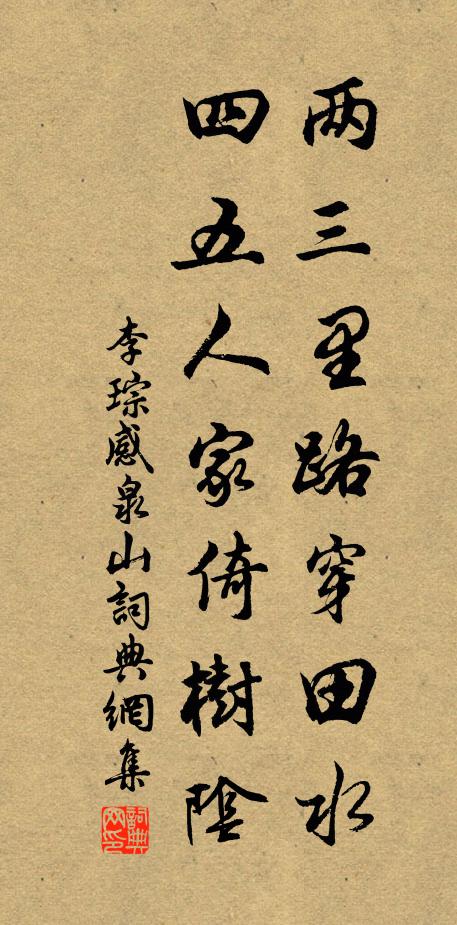 两三里路穿田水
四五人家倚樹陰
李琮感泉山詞典網集
詞典网印